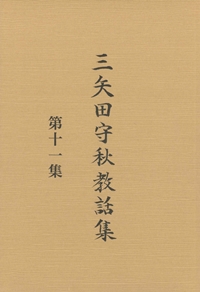 三矢田守秋教話集
第十一集